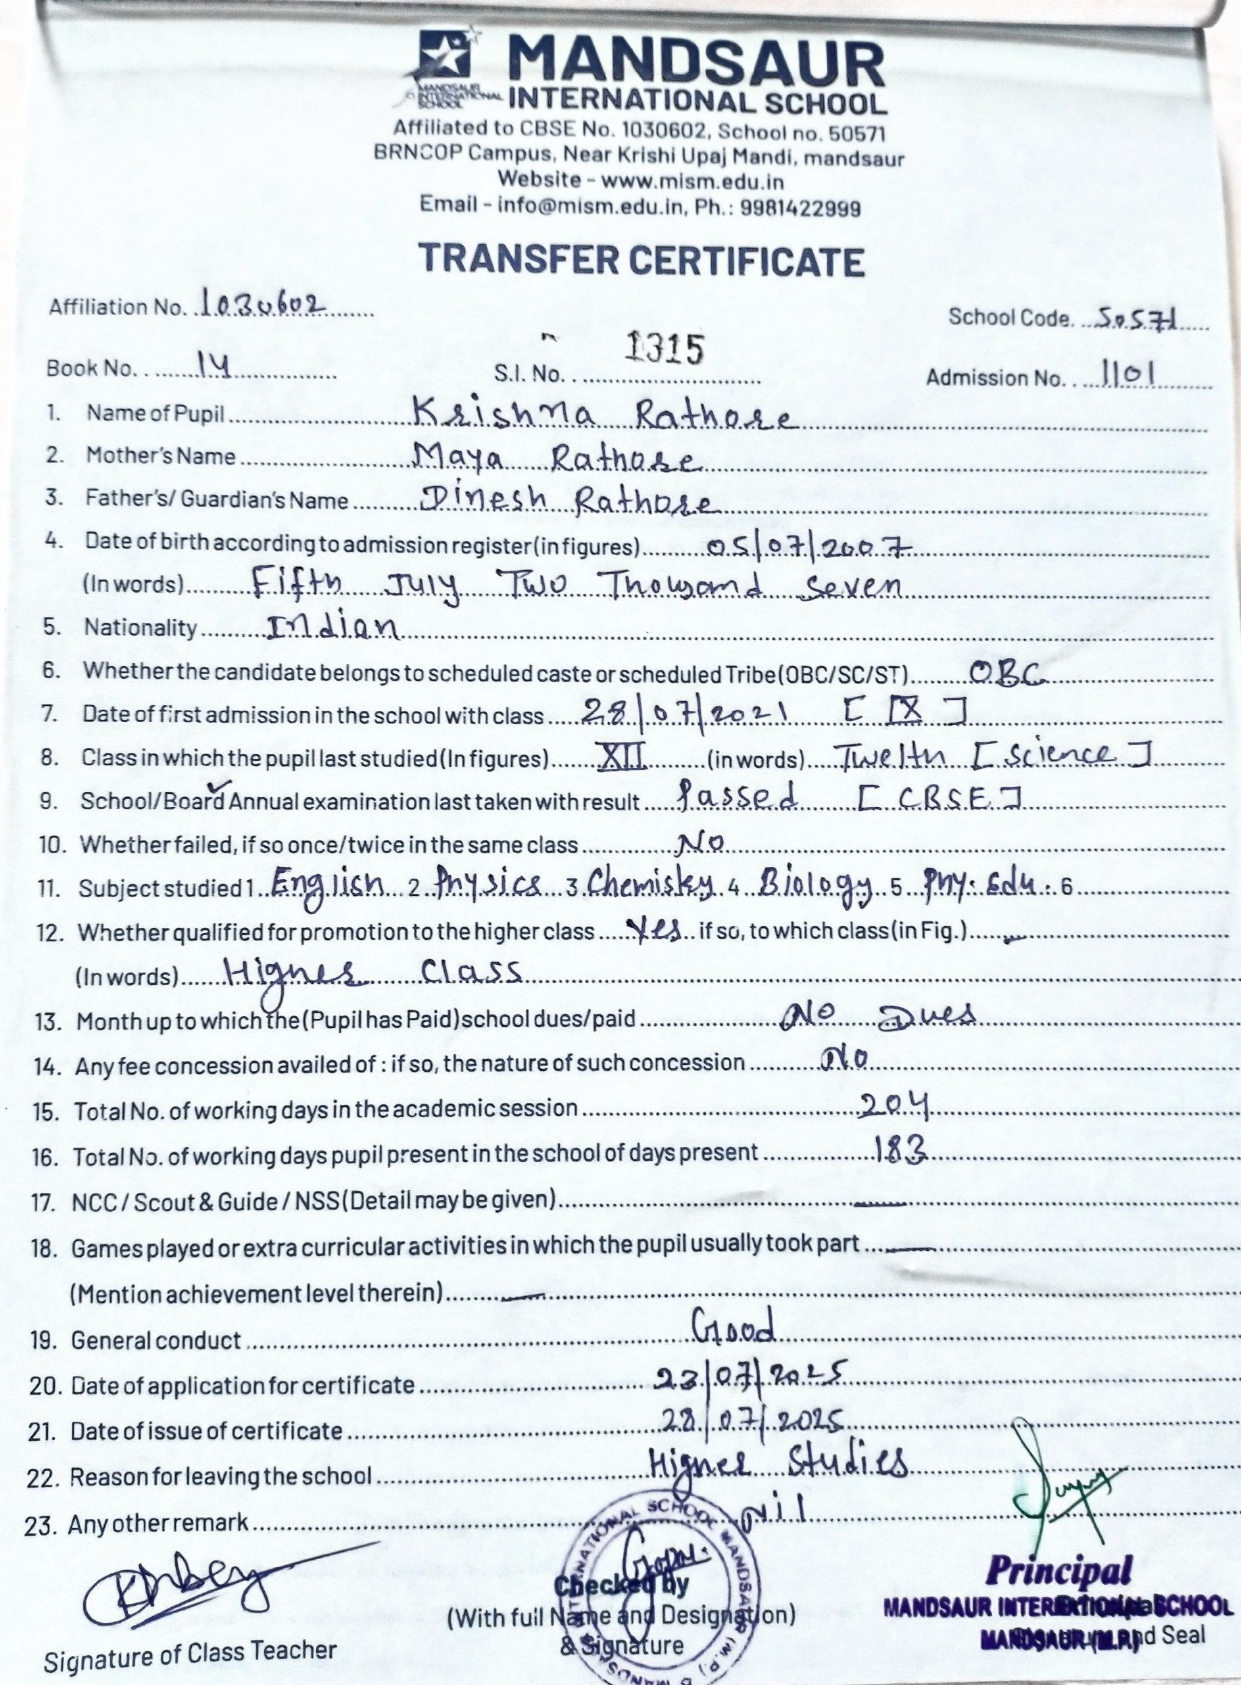 MANDSAUR
INTERNATIONAL SCHOOL
MANDSAUR INTERNATIONAL SCHOOL
Affiliated to CBSE No. 1030602, School no. 50571
BRNCOP Campus, Near Krishi Upaj Mandi, mandsaur
Website - www.mism.edu.in
Email - info@mism.edu.in, Ph.: 9981422999
TRANSFER CERTIFICATE
Affiliation No. 1030602 School Code. 50571
Book No. 14 S.I. No. 1315 Admission No. 1101
1. Name of Pupil Krishna Rathore
2. Mother's Name Maya Rathore
3. Father's/ Guardian's Name Dinesh Rathore
4. Date of birth according to admission register(in figures) 05/07/2007
(In words) Fifth July Two Thousand Seven
5. Nationality Indian
6. Whether the candidate belongs to scheduled caste or scheduled Tribe(OBC/SC/ST) OBC
7. Date of first admission in the school with class 28/07/2021 [ IX ]
8. Class in which the pupil last studied(In figures) XII (in words) Twelth [ Science ]
9. School/Board Annual examination last taken with result Passed [ CBSE ]
10. Whether failed, if so once/twice in the same class No
11. Subject studied 1 English 2 Physics 3 Chemistry 4 Biology 5 Phy. Edu. 6
12. Whether qualified for promotion to the higher class Yes if so, to which class(in Fig.) -
(In words) Higher Class
13. Month up to which the (Pupil has Paid) school dues/paid No Dues
14. Any fee concession availed of : if so, the nature of such concession No
15. Total No. of working days in the academic session 204
16. Total No. of working days pupil present in the school of days present 183
17. NCC / Scout & Guide / NSS (Detail may be given) —
18. Games played or extra curricular activities in which the pupil usually took part —
(Mention achievement level therein) —
19. General conduct Good
20. Date of application for certificate 23/07/2025
21. Date of issue of certificate 28/07/2025
22. Reason for leaving the school Higher Studies
23. Any other remark Nil
Checked by
(With full Name and Designation)
& Signature
Signature of Class Teacher
Principal
MANDSAUR INTERNATIONAL SCHOOL
MANDSAUR (M.P.) and Seal